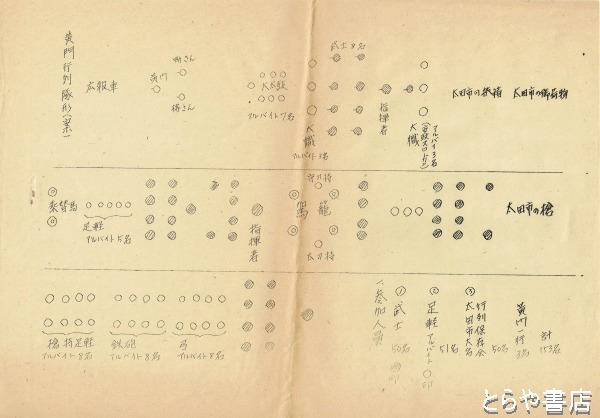 黄門行列隊形(案)
広報車
黄門
助さん
格さん
大太鼓
アルバイト7名
大幟
アルバイト3名
武士8名
指揮者
大幟
アルバイト3名
太田市の挟箱
太田市の御荷物
乗替馬
足軽
アルバイト5名
指揮者
駕籠
太刀持
太田市の槍
槍持足軽
アルバイト8名
鉄砲
アルバイト8名
弓
アルバイト8名
一、参加人員
① 武士 50名
② 足軽アルバイト 〇印 51名
③ 行列保存会 太田市大名 50名
黄門一行 3名
計 153名
とらや書店